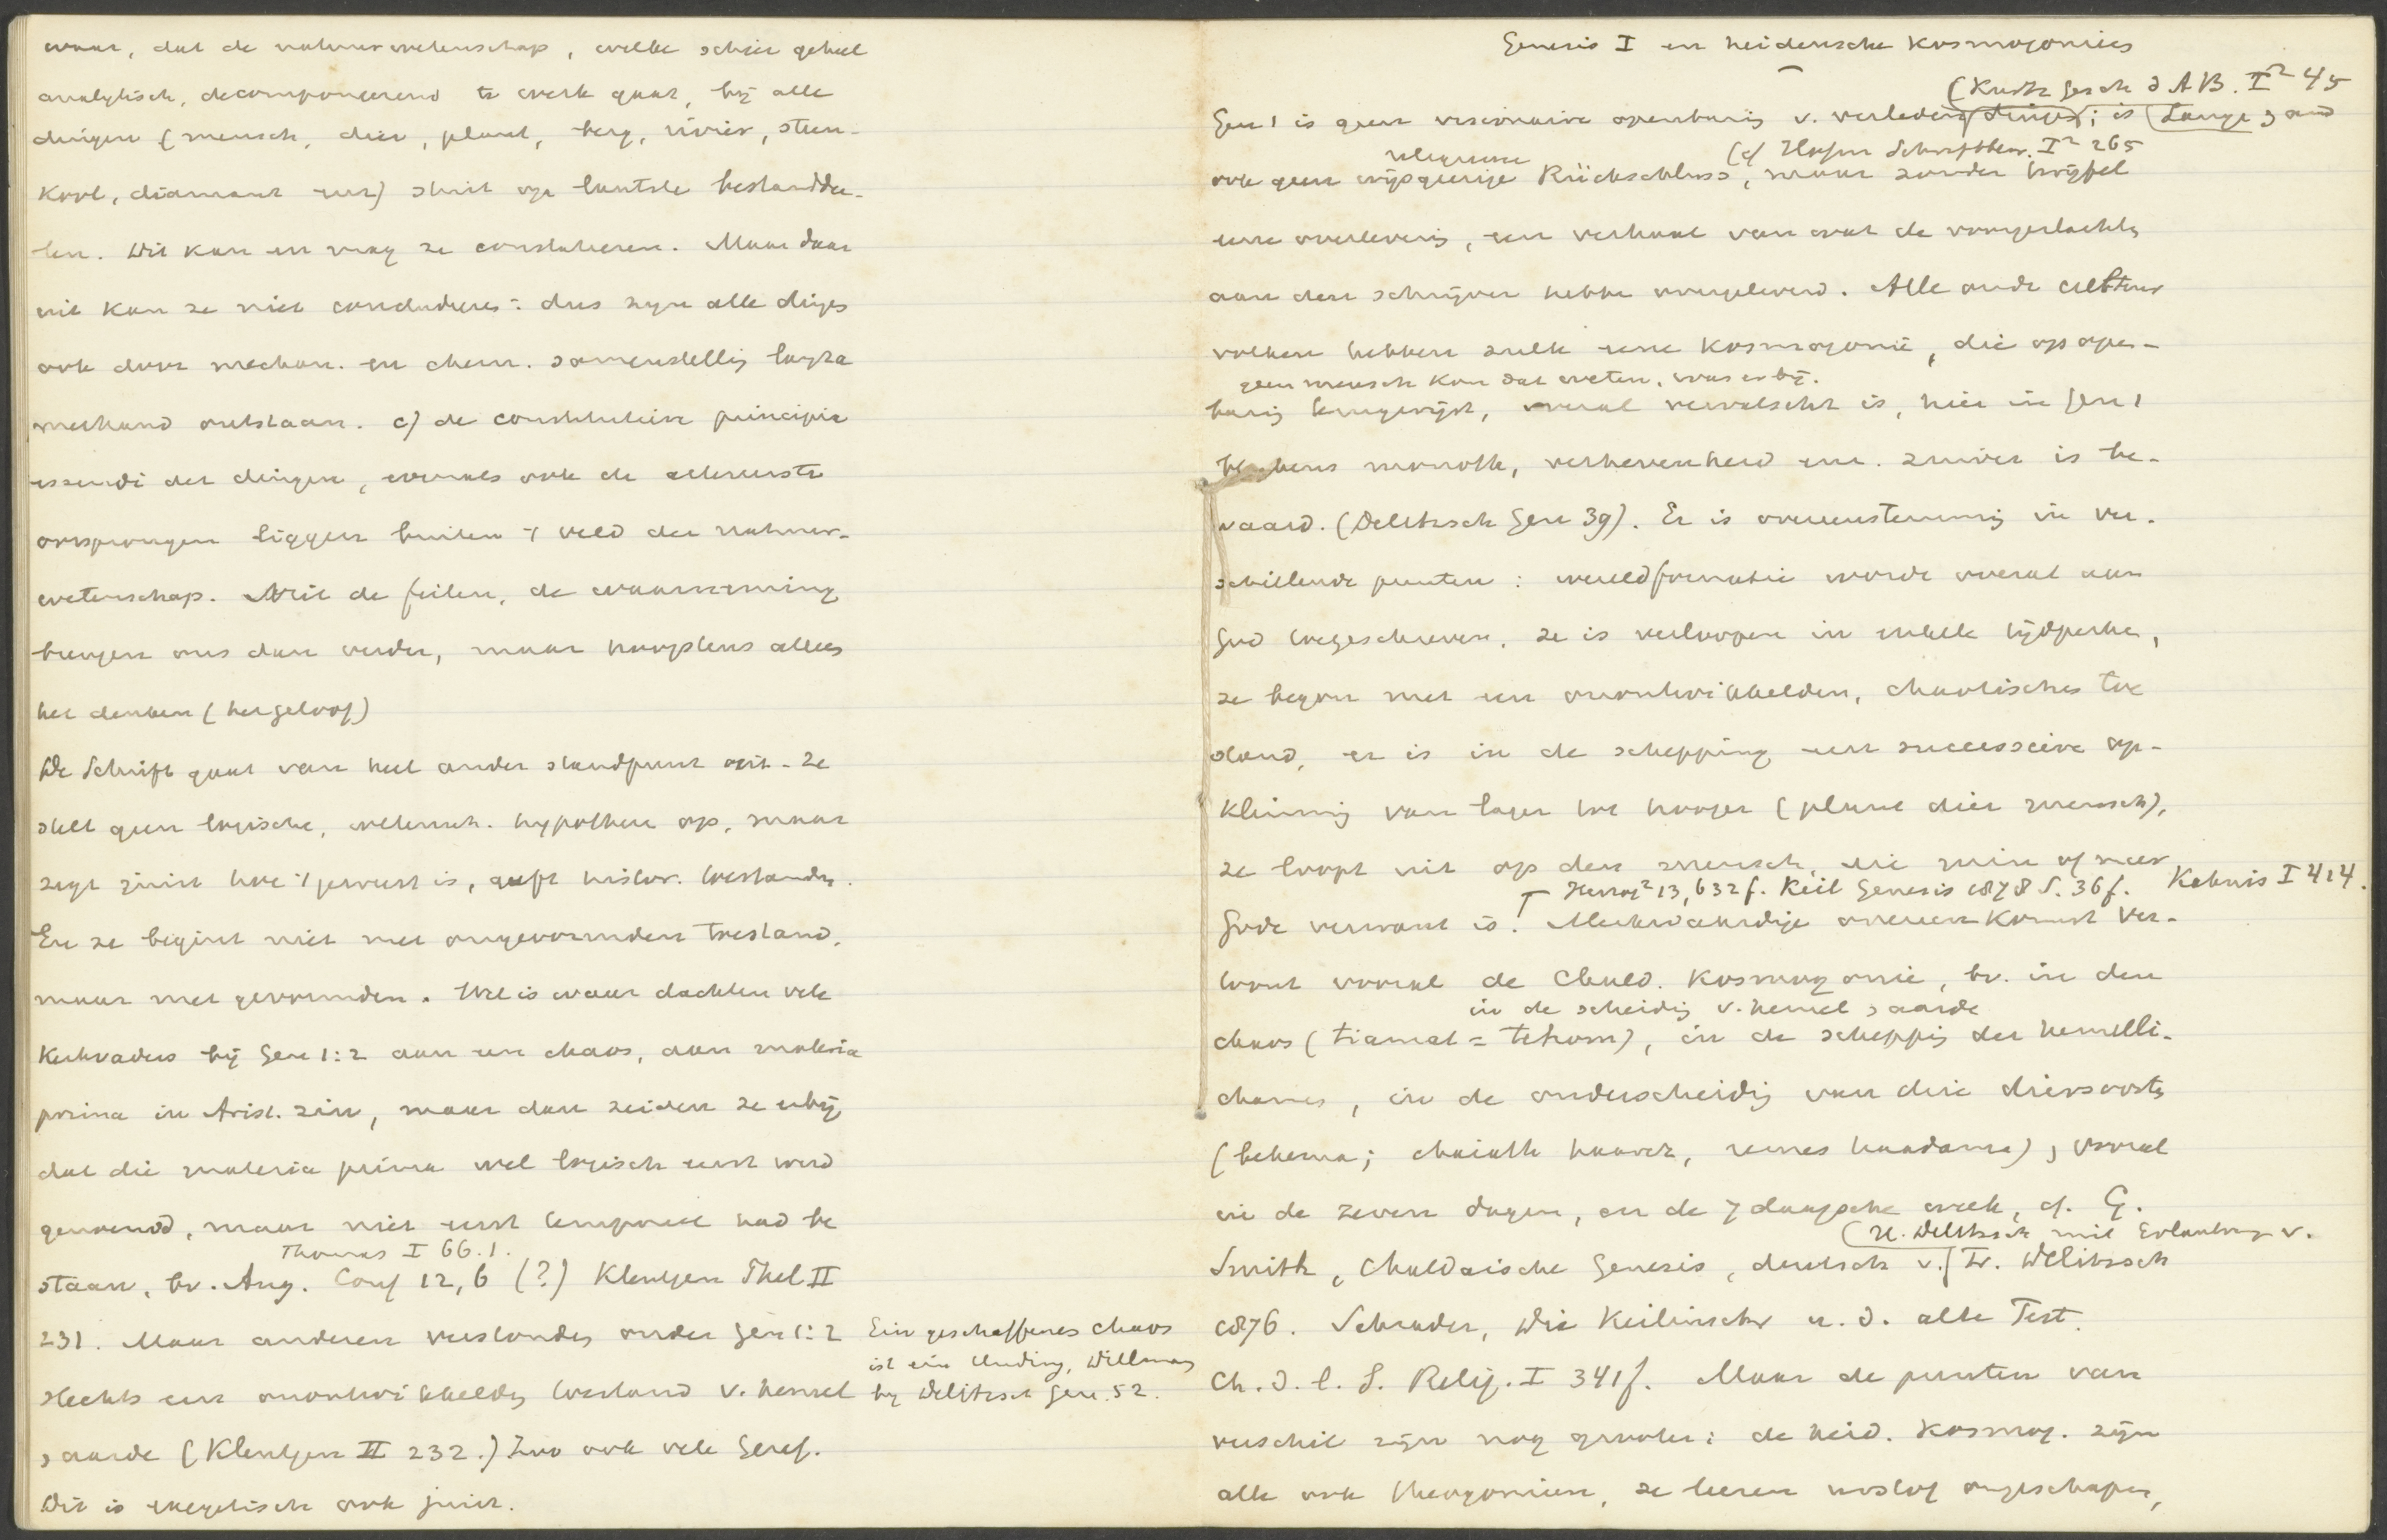 waar, dat de natuurwetenschap, welke schier geheel
analytisch, decomponeerend te werk gaat, bij alle
dingen (mensch, dier, plant, berg, rivier, steen-
kool, diamant enz) stuit op laatste bestanddee-
len. Dit kan en mag ze constateren. Maar daar
uit kan ze niet concluderen: dus zijn alle dinges
ook door mechan. en chem. samenstelling
ontstaan. c) de constitutieve principia
essendi der dingen, evenals ook de allereerste
oorsprongen liggen buiten 't veld der natuur-
wetenschap. Niet de feiten, de waarneming
brengen ons dan verder, maar hoogstens alleen
het denken (het geloof)
De Schrift gaat van heel ander standpunt uit. Ze
stelt geen logische, wetensch. hypothese op, maar
zegt juist hoe 't geweest is, geeft histor. toestanden.
En ze begint niet met ongevormden toestand,
maar met gevormden. Wel is waar dachten vele
Kerkvaders bij Gen 1:2 aan een chaos, aan materia
prima in Arist. zin, maar dan zeiden ze erbij
dat die materia prima wel logisch eerst werd
genoemd, maar niet eerst temporeel had be
Thomas I 66.1.
staan, bv. Aug. Conf 12,6 (?) Kleutgen Theol II
231. Maar anderen verstonden onder Gen 1:2
slechts een onontwikkelden toestand v. hemel
& aarde (Kleutgen II 232.) Zoo ook vele Geref.
Dit is exegetisch ook juist.
Ein geschaffenes Chaos
ist ein Unding,
by Delitzsch Gen. 52.
Genesis I en heidensche Kosmogonieën
(Kurtz Gesch d AB. I² 45
Gen 1 is geen visionaire openbaring v. verleden dingen; is Lange
(cf Hofm Schriftbew. I² 265
religieuse
ook geen wijsgeerige Rückschluss, maar zonder twijfel
eene overlevering, een verhaal van wat de voorgeslachten
aan den schrijver hebben overgeleverd. Alle oude cultuur
volken hebben zulk eene Kosmogonie, die op open-
geen mensch kon dat weten, was erbij.
baring terugwijst, overal vervalscht is, hier in Gen 1
monoth, verhevenheid enz. zuiver is be-
waard. (Delitzsch Gen 39). Er is overeenstemming in ver-
schillende punten: wereldformatie wordt overal aan
God toegeschreven, ze is verloopen in enkele tijdperken,
ze begon met een onontwikkelden, chaotischen toe
stand, er is in de schepping een successieve op-
klimming van lager tot hooger (plant dier mensch),
ze loopt uit op den mensch, die min of meer
Herzog² 13, 632 f. Keil Genesis 1878 S. 36 f. Kahnis I 414.
Gode verwant is. Merkwaardige overeenkomst ver-
toont vooral de Chald. Kosmogonie, bv. in den
in de scheiding v. hemel & aarde
chaos (tiamat = tehom), in de schepping der hemelli-
chamen, in de onderscheiding van drie diersoorten
(behema; chaiath haarez, remes haadama), vooral
in de zeven dagen, en de 7daagsche week, cf. G.
(H. Delitzsch mit Erlaubnis v.
Smith, Chaldäische Genesis, deutsch v. Fr. Delitzsch
1876. Schrader, Die Keilinschr u. d. alte Test.
Ch. d. l. S. Relig. I 341 f. Maar de punten van
verschil zijn nog grooter: de heid. kosmog. zijn
alle ook theogonieën, ze leeren ongeschapen,